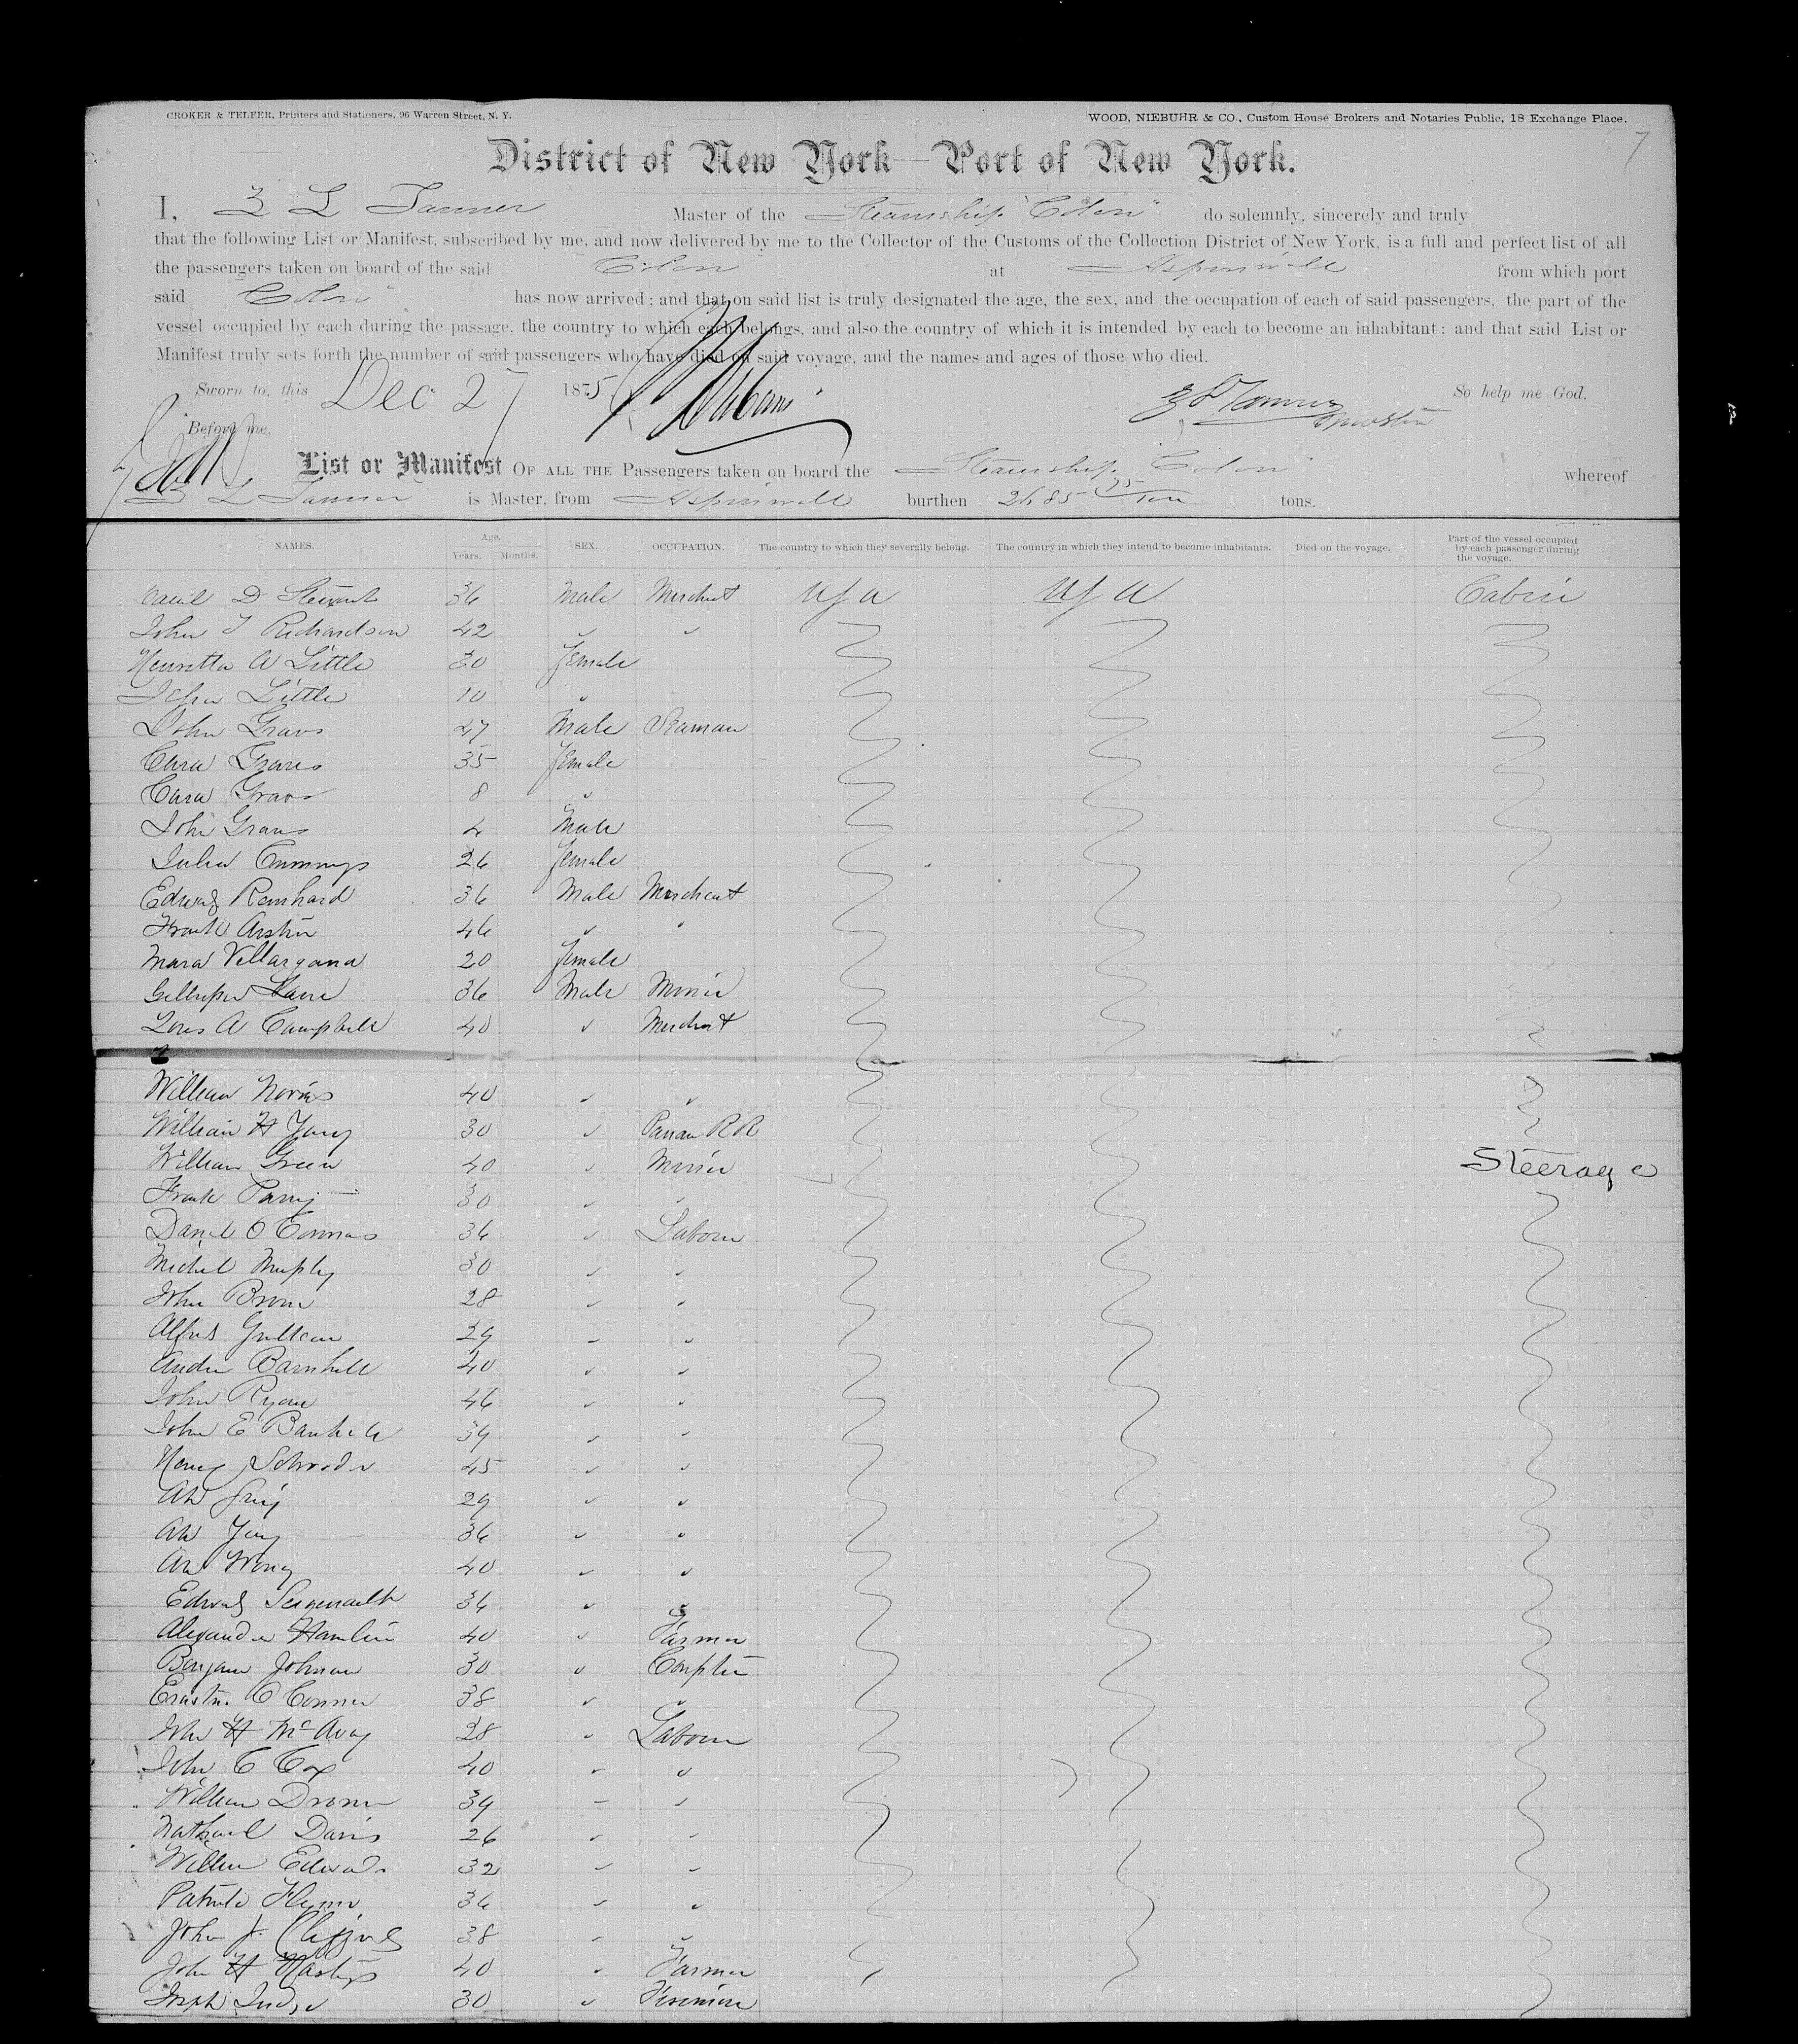 CROKER & TELFER, Printers and Stationers, 96 Warren Street, N. Y.
WOOD, NIEBUHR & CO., Custom House Brokers and Notaries Public, 18 Exchange Place.
7
District of New York—Port of New York.
I, Z L Tanner Master of the Steamship "Colon" do solemnly, sincerely and truly
that the following List or Manifest, subscribed by me, and now delivered by me to the Collector of the Customs of the Collection District of New York, is a full and perfect list of all
the passengers taken on board of the said Colon at Aspinwall from which port
said Colon has now arrived; and that on said list is truly designated the age, the sex, and the occupation of each of said passengers, the part of the
vessel occupied by each during the passage, the country to which each belongs, and also the country of which it is intended by each to become an inhabitant; and that said List or
Manifest truly sets forth the number of said passengers who have died on said voyage, and the names and ages of those who died.
Sworn to, this Dec 27 1875 Z L Tanner So help me God.
Before me,
List or Manifest OF ALL THE Passengers taken on board the Steamship Colon whereof
Z L Tanner is Master, from Aspinwall burthen 2685 tons.
NAMES. Age. Years. Months. SEX. OCCUPATION. The country to which they severally belong. The country in which they intend to become inhabitants. Died on the voyage. Part of the vessel occupied by each passenger during the voyage.
D Stewart 36 Male Merchat U S A U S A Cabin
John T Richardson 42 " "
Henretta A Little 30 Female
Little 10 "
John Graves 27 Male Seaman
Cara Graves 35 Female
Cara Graves 8 "
John Graves 4 Male
Julia Cummings 26 Female
Edward Reinhard 36 Male Merchant
Frank Austin 46 " "
Mara Villargana 20 Female
36 Male Miner
Louis A Campbell 40 " Merchat
William Norris 40 " "
William H Yung 30 " Panan R R
William Green 40 " Miner Steerage
Frank Parry 30 " "
Daniel O Connas 36 " Laborer
Michel Murphy 30 " "
John Brown 28 " "
Alfred 29 " "
Andrew Barnhill 40 " "
John Ryan 46 " "
John E 39 " "
Henry Schroder 45 " "
Ah 29 " "
Ah Yung 36 " "
Ah Wong 40 " "
Edward 36 " "
Alexander Hamlin 40 " Farmer
Benjamn Johnson 30 " Carpter
O Conner 38 " "
John H McAvoy 28 " Laborer
John C Cox 40 " "
William 39 " "
Nathanel Davis 26 " "
William Edwards 32 " "
Patrick Flynn 36 " "
John J. Clifford 38 " "
John H Hastings 40 " Farmer
Joseph 30 " Fireman